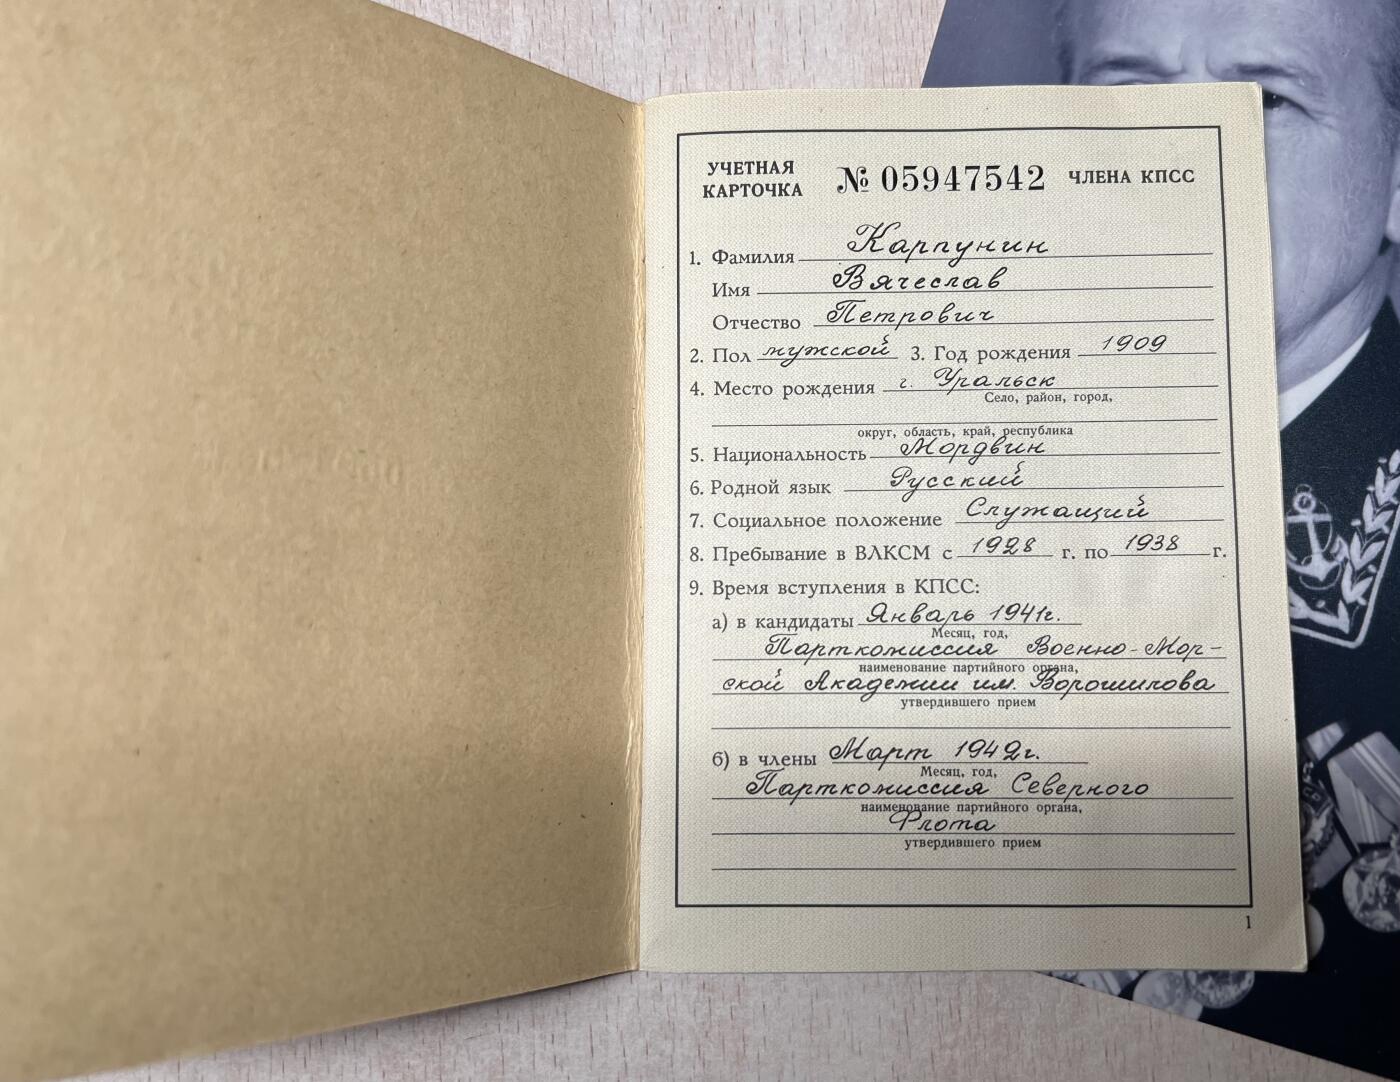 УЧЕТНАЯ КАРТОЧКА № 05947542 ЧЛЕНА КПСС
1. Фамилия Карпунин
Имя Вячеслав
Отчество Петрович
2. Пол мужской 3. Год рождения 1909
4. Место рождения г. Уральск
Село, район, город,
округ, область, край, республика
5. Национальность Мордвин
6. Родной язык Русский
7. Социальное положение Служащий
8. Пребывание в ВЛКСМ с 1928 г. по 1938 г.
9. Время вступления в КПСС:
а) в кандидаты Январь 1941г.
Месяц, год,
Парткомиссия Военно-Мор-
наименование партийного органа,
ской Академии им. Ворошилова
утвердившего прием
б) в члены Март 1942г.
Месяц, год,
Парткомиссия Северного
наименование партийного органа,
Флота
утвердившего прием
1